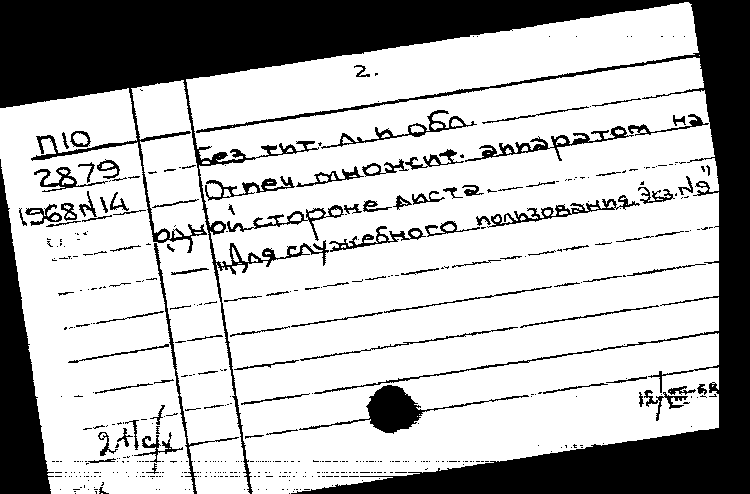 2.
П10
2879
1968N14
Без тит. л. и обл.
Отпеч. множит. аппаратом на
одной стороне листа.
— "Для служебного пользования. Экз. №"